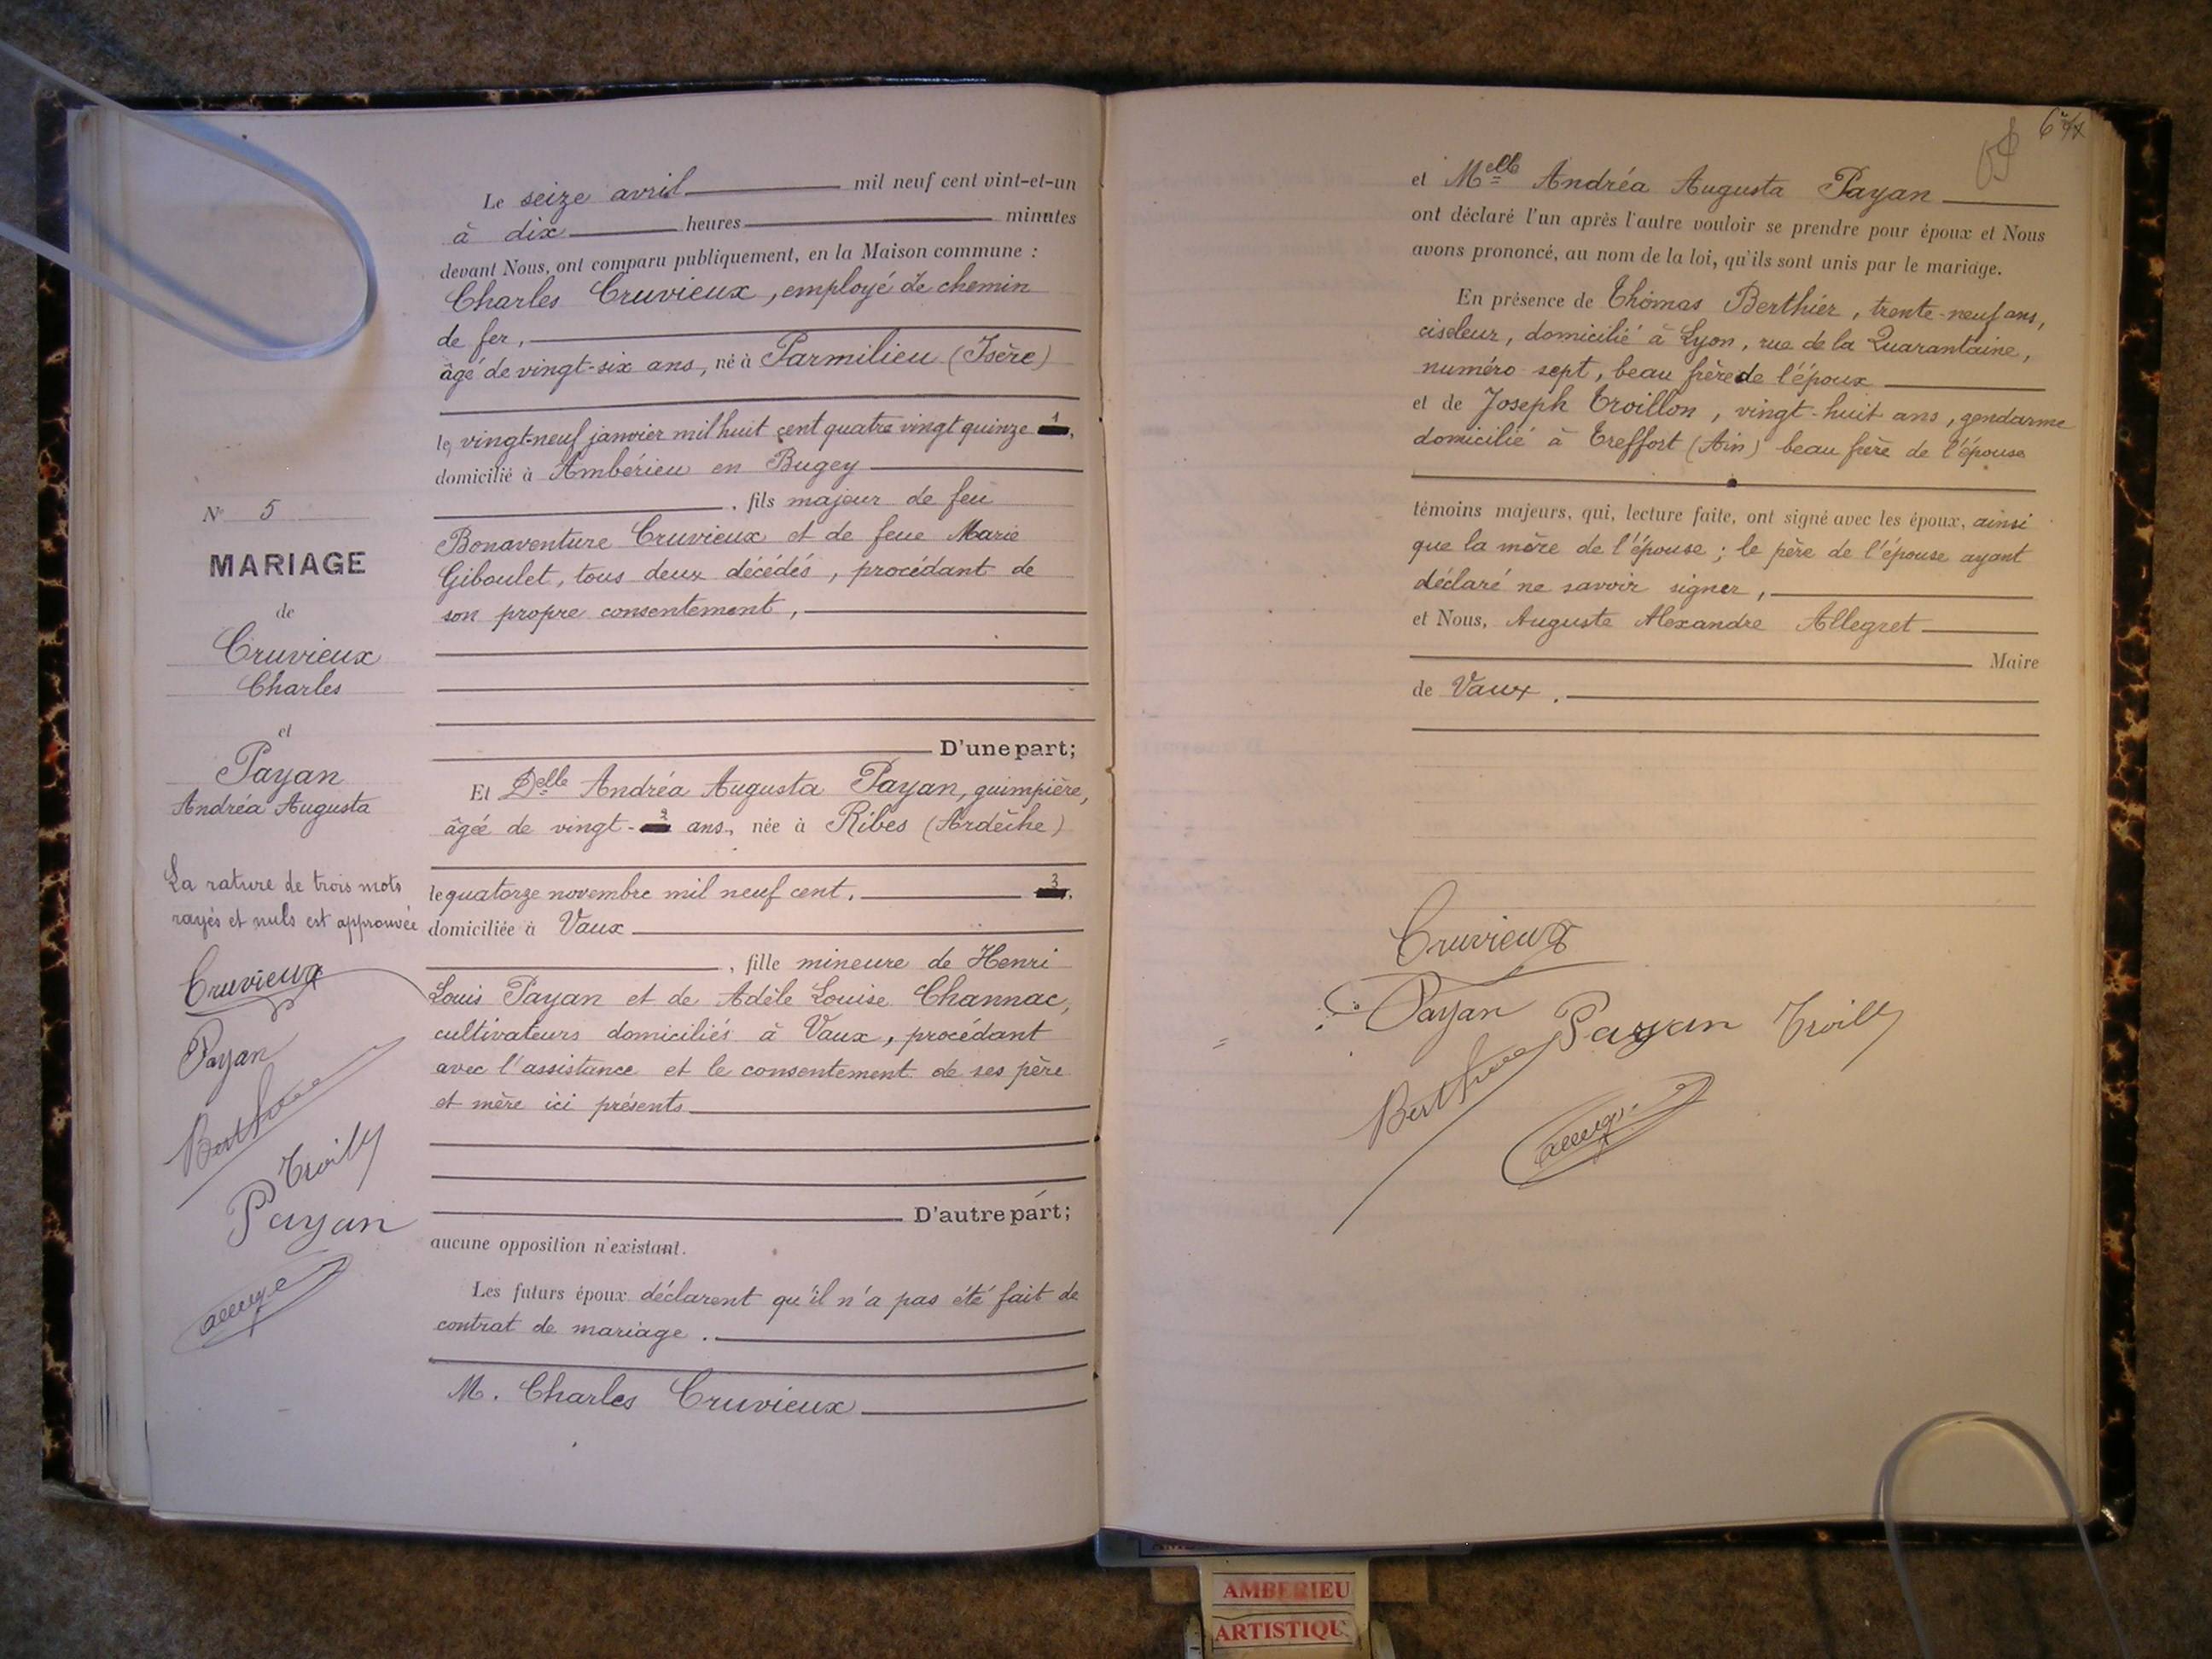 Le seize avril mil neuf cent vint-et-un
à dix heures minutes
devant Nous, ont comparu publiquement, en la Maison commune :
Charles Cruvieux, employé de chemin
de fer,
âgé de vingt-six ans, né à Parmilieu (Isère)
le vingt-neuf janvier mil huit cent quatre vingt quinze 1,
domicilié à Ambérieu en Bugey
, fils majeur de feu
Bonaventure Cruvieux et de feue Marie
Giboulet, tous deux décédés, procédant de
son propre consentement,
D'une part;
Et Delle Andréa Augusta Payan, guimpière,
âgée de vingt- 2 ans, née à Ribes (Ardèche)
le quatorze novembre mil neuf cent. 3,
domiciliée à Vaux
, fille mineure de Henri
Louis Payan et de Adèle Louise Channac,
cultivateurs domiciliés à Vaux, procédant
avec l'assistance et le consentement de ses père
et mère ici présents
D'autre part;
aucune opposition n'existant.
Les futurs époux déclarent qu'il n'a pas été fait de
contrat de mariage.
M. Charles Cruvieux
N° 5
MARIAGE
de
Cruvieux
Charles
et
Payan
Andréa Augusta
La rature de trois mots
rayés et nuls est approuvée
Cruvieux
Payan
Payan
et Melle Andréa Augusta Payan
ont déclaré l'un après l'autre vouloir se prendre pour époux et Nous
avons prononcé, au nom de la loi, qu'ils sont unis par le mariage.
En présence de Thomas Berthier, trente-neuf ans,
ciseleur, domicilié à Lyon, rue de la Quarantaine,
numéro sept, beau frère de l'époux
et de Joseph Troillon, vingt-huit ans, gendarme
domicilié à Treffort (Ain) beau frère de l'épouse
témoins majeurs, qui, lecture faite, ont signé avec les époux, ainsi
que la mère de l'épouse ; le père de l'épouse ayant
déclaré ne savoir signer,
et Nous, Auguste Alexandre Allegret
Maire
de Vaux.
Cruvieux
Payan
Payan
AMBERIEU
ARTISTIQU